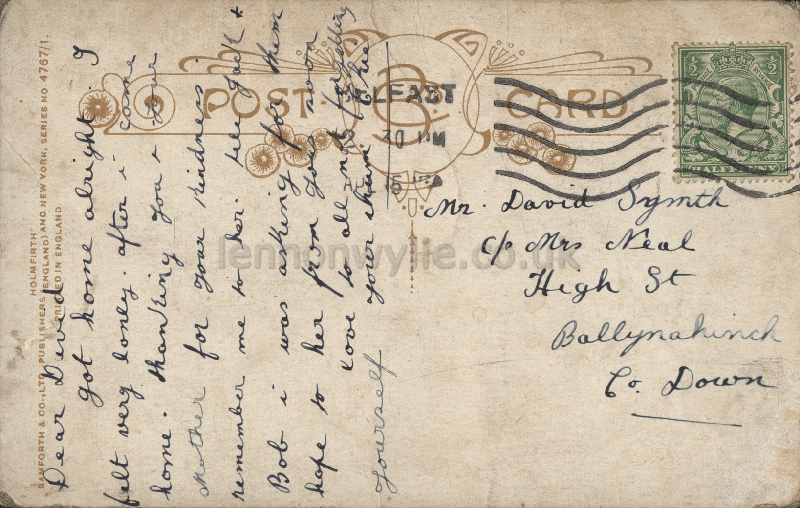 POST CARD
BELFAST
Mr. David Symth
C/o Mrs Neal
High St
Ballynahinch
Co. Down
Dear David
I got home alright. I
felt very lonly. after i come
home. thanking you & your
Mother for your kindness
remember me to her. tell Jack &
Bob i was asking for them
hope to her from you soon
love to all not forgetting
yourself
your chum
BAMFORTH & CO., LTD. PUBLISHERS (ENGLAND) AND NEW YORK, SERIES NO. 4767/1.
HOLMFIRTH
PRINTED IN ENGLAND
lennonwylie.co.uk